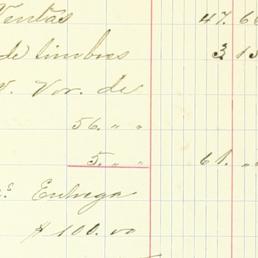 Ventas 47. 6
de timbres 3 15
V. Vor. de
56. " "
5. " " 61. " "
Entrega
$100.00